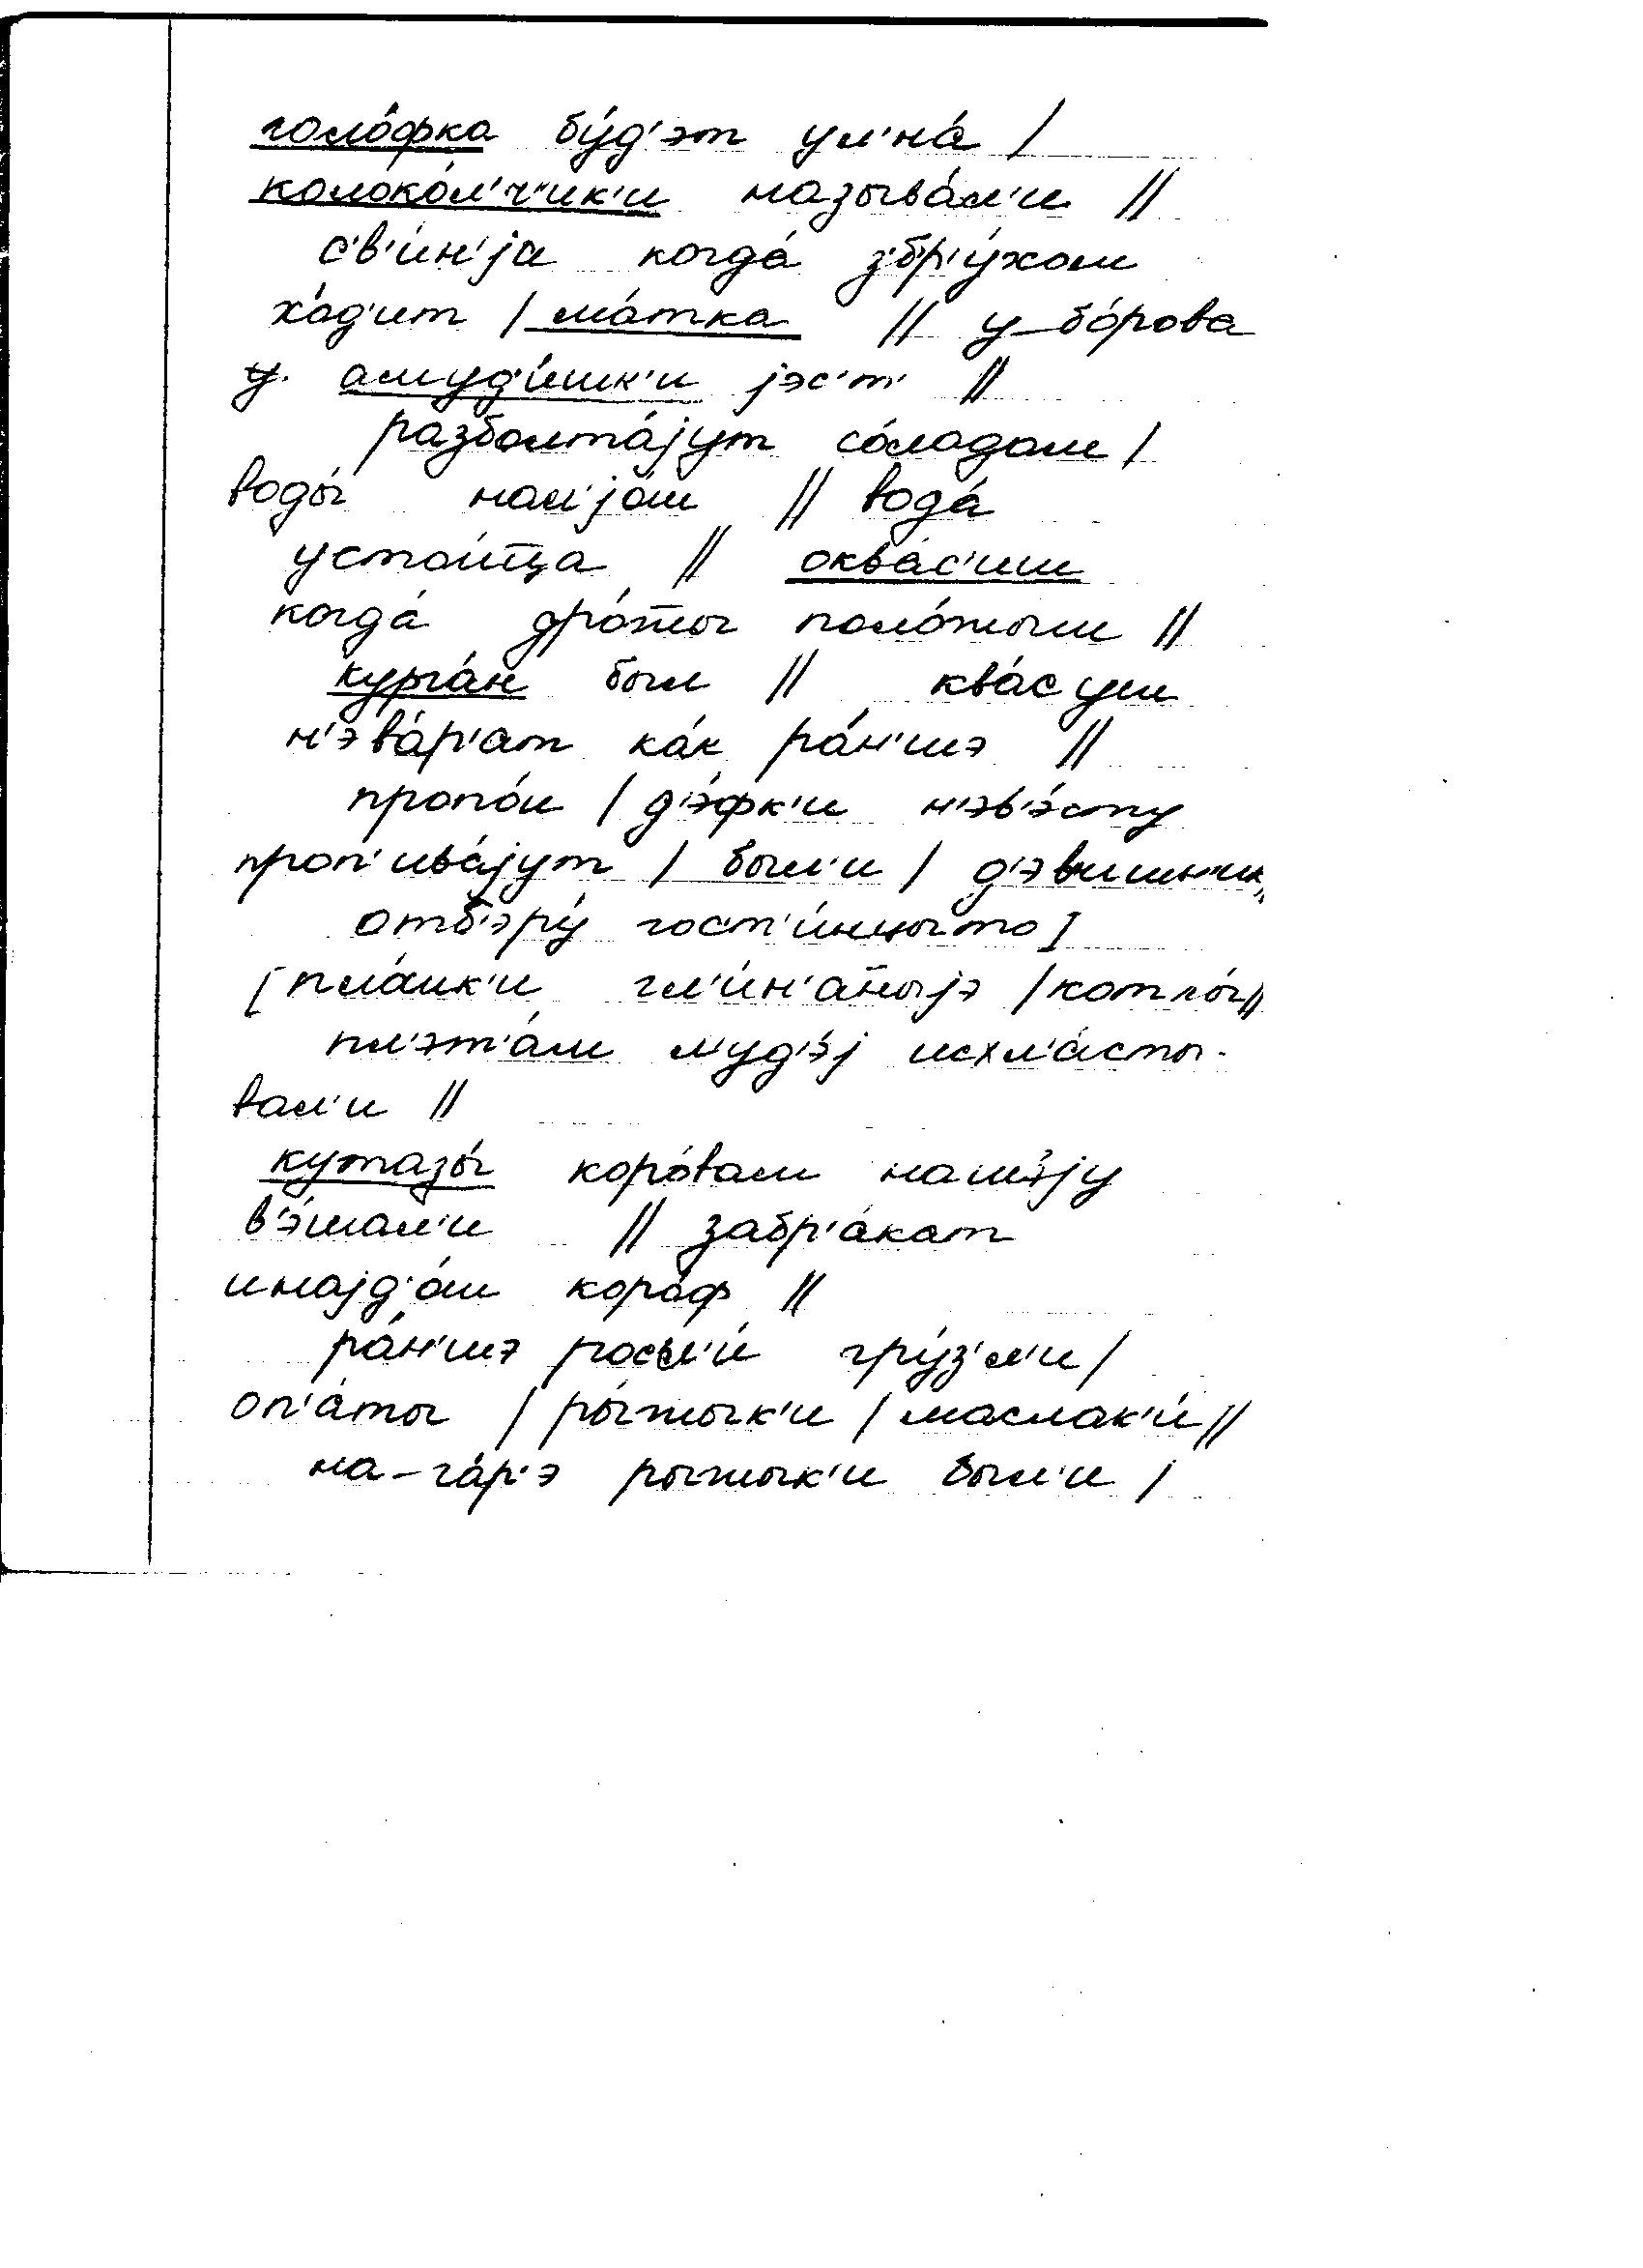 голо́фка бу́д'эт ум'на́ /
колоко́л'ч'ик'и называ́л'и //
с'в'ин'ја когда́ з'бр'у́хом
хо́д'ит / ма́тка // у бо́рова
амуд'и́шк'и јэс'т' //
разболта́јут со́лодом /
воды́ нал'јо́ш // вода́
устои́тца // оква́с'иш
когда́ дро́жжы поло́жыш //
курга́н был // ква́с уш
н'эва́р'ат ка́к ра́н'шэ //
пропо́и / д'э́фк'и н'эв'э́сту
проп'ива́јут / был'и / д'эвишн'ик'
отб'эру́ гост'и́нцыто]
[пло́шк'и гл'и́н'аныјэ / котлы́ //
пл'эт'а́м л'уд'э́ј исхл'а́сты-
вал'и //
кутазы́ коро́вам нашэ́ју
в'э́шал'и // забр'а́кат
инајд'о́ш коро́ф //
ра́н'шэ росл'и́ гру́з'л'и /
оп'а́ты / ры́жык'и / маслак'и́ //
на-га́р'э рыжык'и был'и /